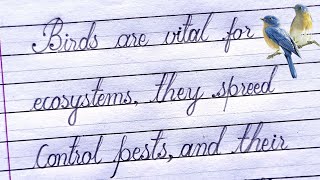 Birds are vital for
ecosystems, they spread
Control pests, and their